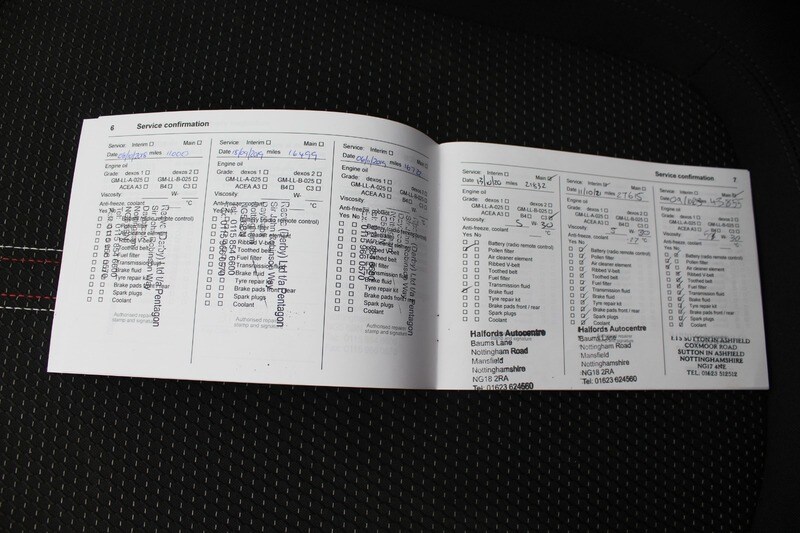 6 Service confirmation
Service: Interim Main
Date miles 11000
Engine oil
Grade: dexos 1 dexos 2
GM-LL-A-025 GM-LL-B-025
ACEA A3 B4 C3
Viscosity: W- °C
Anti-freeze, coolant
Yes No
Battery (radio remote control)
Pollen filter
Air cleaner element
Ribbed V-belt
Toothed belt
Fuel filter
Transmission fluid
Brake fluid
Tyre repair kit
Brake pads front / rear
Spark plugs
Coolant
Authorised repairer
stamp and signature
Service: Interim Main
Date miles 16499
Engine oil
Grade: dexos 1 dexos 2
GM-LL-A-025 GM-LL-B-025
ACEA A3 B4 C3
Viscosity: W- °C
Anti-freeze, coolant
Yes No
Battery (radio remote control)
Pollen filter
Air cleaner element
Ribbed V-belt
Toothed belt
Fuel filter
Transmission fluid
Brake fluid
Tyre repair kit
Brake pads front / rear
Spark plugs
Coolant
Authorised repairer
stamp and signature
(Derby) Ltd t/a Pentagon
Service: Interim Main
Date miles
Engine oil
Grade: dexos 1 dexos 2
GM-LL-A-025 GM-LL-B-025
ACEA A3 B4 C3
Viscosity: W-
Anti-freeze, coolant
Yes No
Battery (radio remote control)
Pollen filter
Air cleaner element
Ribbed V-belt
Toothed belt
Fuel filter
Transmission fluid
Brake fluid
Tyre repair kit
Brake pads front / rear
Spark plugs
Coolant
Authorised repairer
stamp and signature
Service confirmation 7
Service: Interim Main
Date miles 21832
Engine oil
Grade: dexos 1 dexos 2
GM-LL-A-025 GM-LL-B-025
ACEA A3 B4 C3
Viscosity: 5 30
Anti-freeze, coolant °C
Yes No
Battery (radio remote control)
Pollen filter
Air cleaner element
Ribbed V-belt
Toothed belt
Fuel filter
Transmission fluid
Brake fluid
Tyre repair kit
Brake pads front / rear
Spark plugs
Coolant
Halfords Autocentre
Baums Lane
Nottingham Road
Mansfield
Nottinghamshire
NG18 2RA
Tel: 01623 624560
Service: Interim Main
Date miles 27615
Engine oil
Grade: dexos 1 dexos 2
GM-LL-A-025 GM-LL-B-025
ACEA A3 B4 C3
Viscosity: 30
Anti-freeze, coolant
Yes No
Battery (radio remote control)
Pollen filter
Air cleaner element
Ribbed V-belt
Toothed belt
Fuel filter
Transmission fluid
Brake fluid
Tyre repair kit
Brake pads front / rear
Spark plugs
Coolant
Halfords Autocentre
Baums Lane
Nottingham Road
Mansfield
Nottinghamshire
NG18 2RA
Tel: 01623 624560
Service: Interim Main
Date
Engine oil
Grade: dexos 1 dexos 2
GM-LL-A-025 GM-LL-B-025
ACEA A3 B4 C3
Viscosity: 30
Anti-freeze, coolant
Yes No
Battery (radio remote control)
Pollen filter
Air cleaner element
Ribbed V-belt
Toothed belt
Fuel filter
Transmission fluid
Brake fluid
Tyre repair kit
Brake pads front / rear
Spark plugs
Coolant
SUTTON IN ASHFIELD
COXMOOR ROAD
SUTTON IN ASHFIELD
NOTTINGHAMSHIRE
NG17 4NE